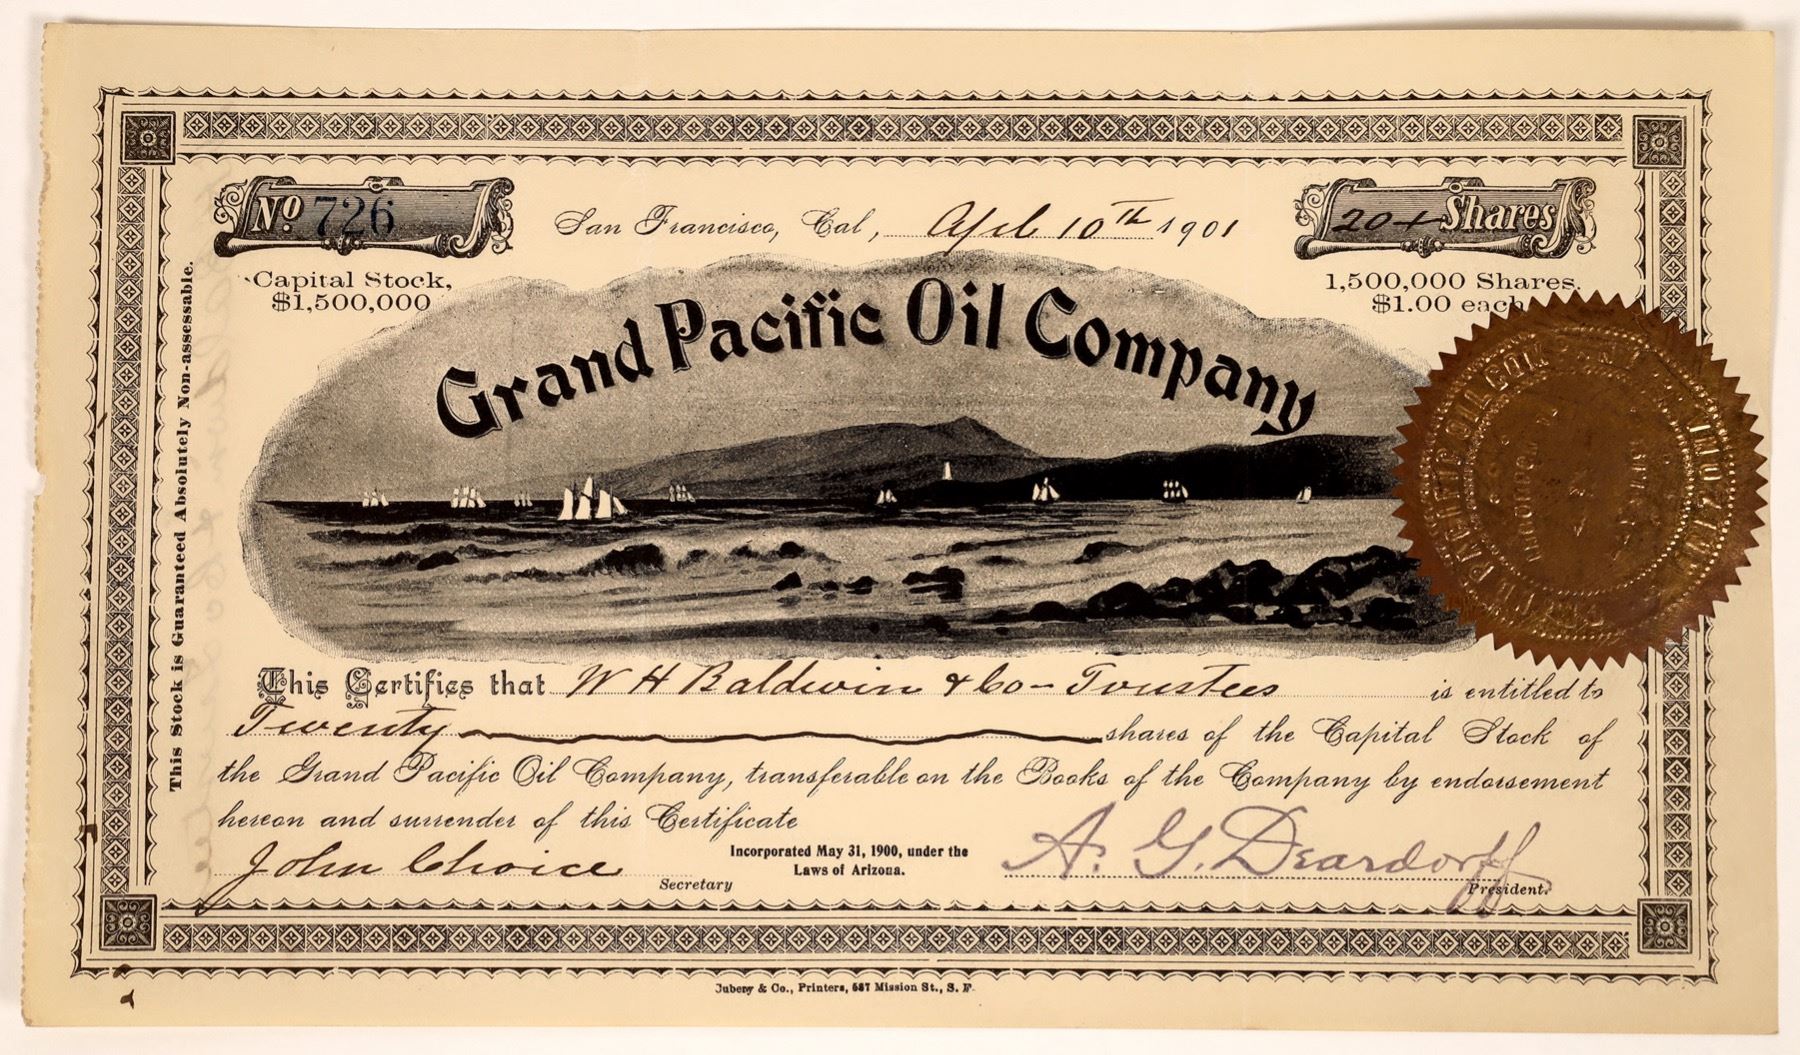 No 726
San Francisco, Cal, April 10th 1901
20+ Shares
Capital Stock,
$1,500,000
1,500,000 Shares.
$1.00 each
Grand Pacific Oil Company
This Stock is Guaranteed Absolutely Non-assessable.
This Certifies that W H Baldwin & Co - Trustees is entitled to
Twenty shares of the Capital Stock of
the Grand Pacific Oil Company, transferable on the Books of the Company by endorsement
hereon and surrender of this Certificate
John Choice Secretary
Incorporated May 31, 1900, under the
Laws of Arizona.
A. G. Deardorff President.
& Co., Printers, 587 Mission St., S. F.